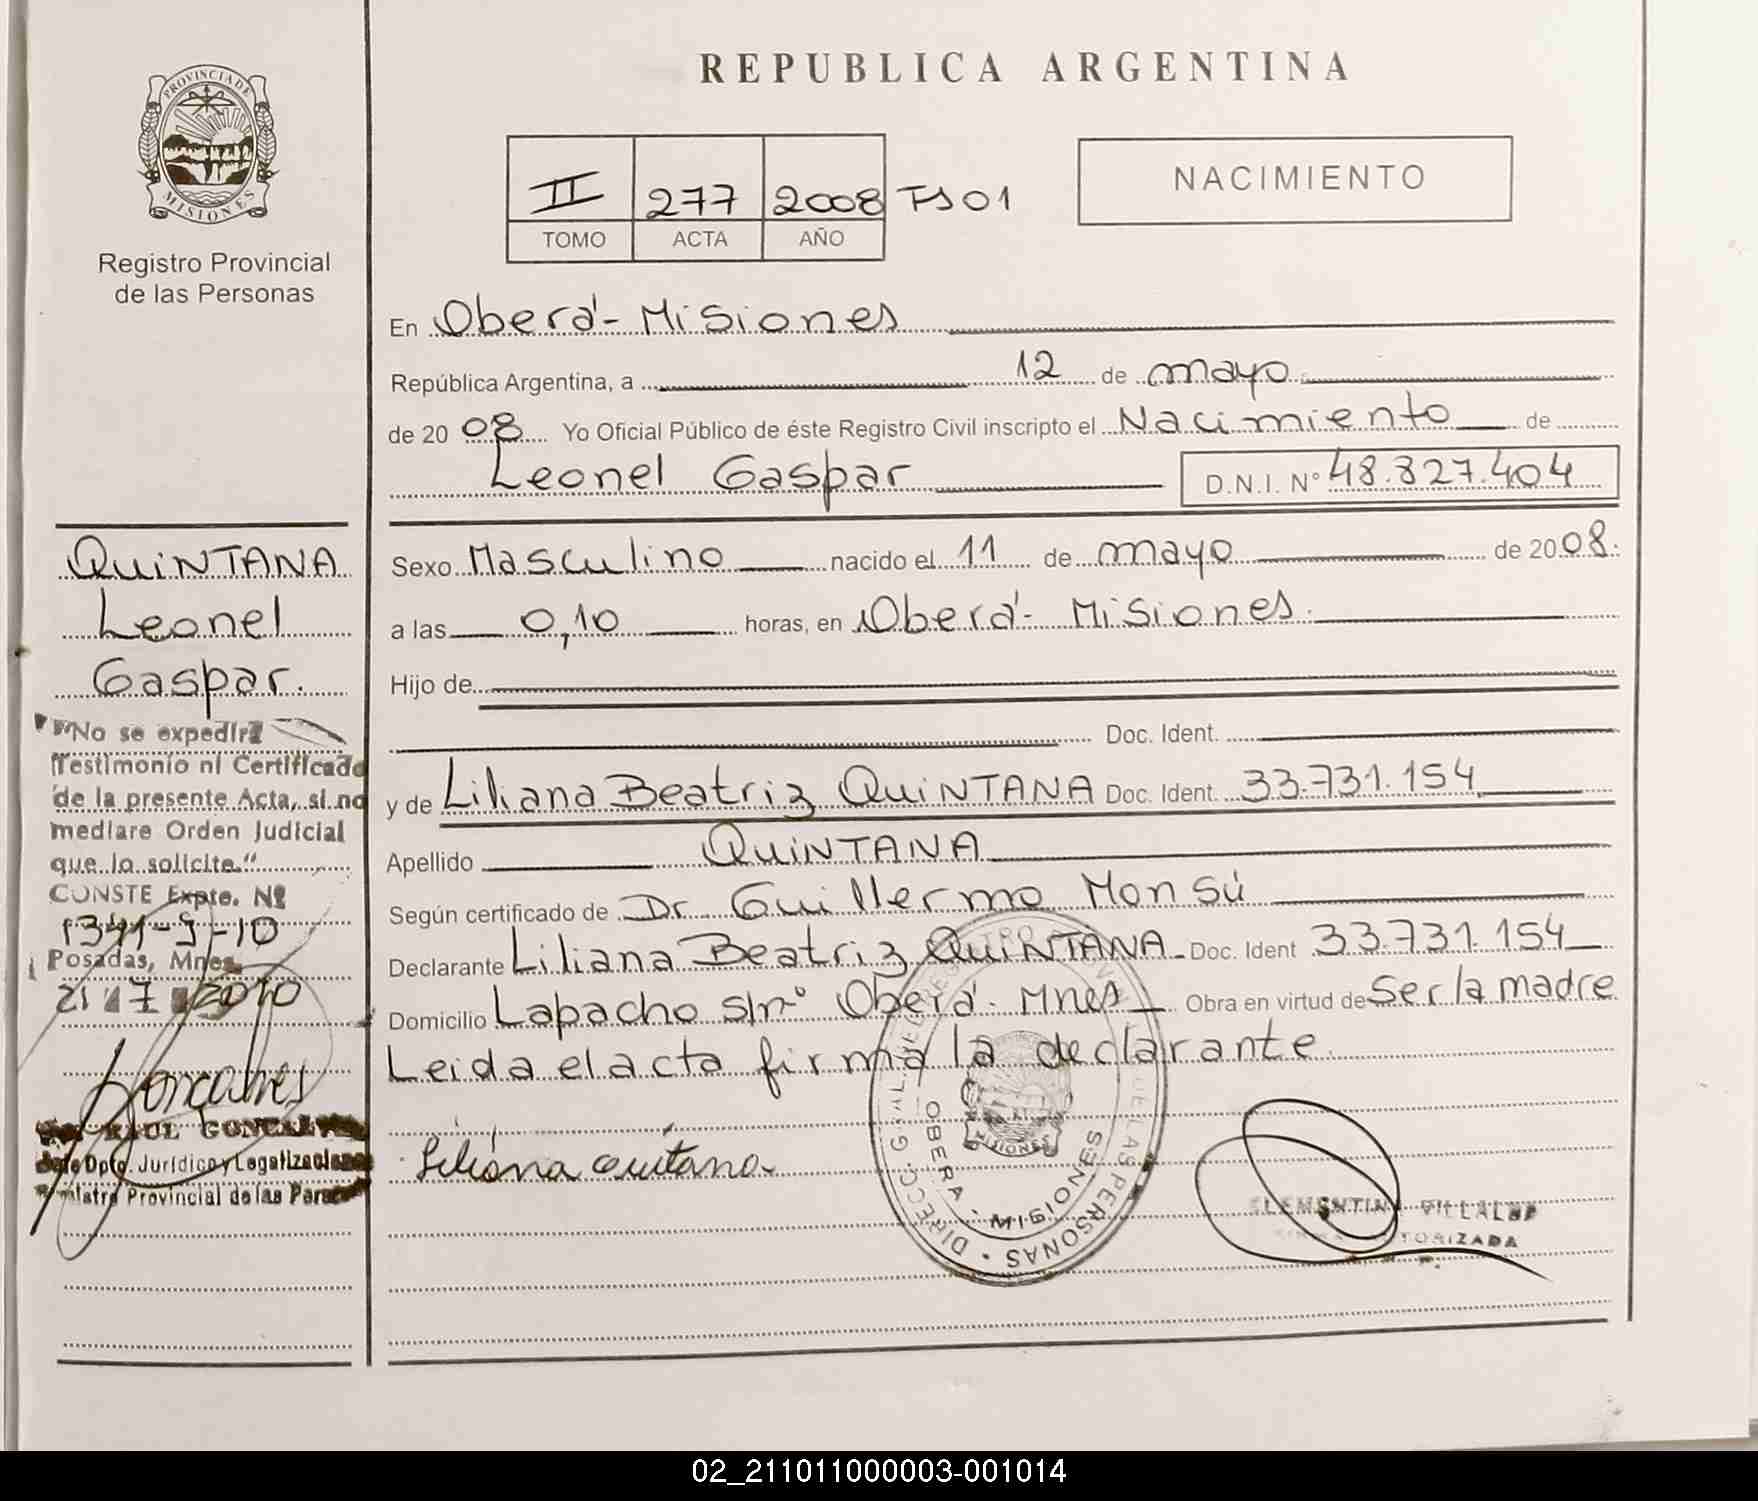 REPUBLICA ARGENTINA
PROVINCIA DE
MISIONES
Registro Provincial
de las Personas
II 277 2008 FS 01
TOMO ACTA AÑO
NACIMIENTO
En Oberá - Misiones
República Argentina, a 12 de mayo
de 20 08 Yo Oficial Público de éste Registro Civil inscripto el Nacimiento de
Leonel Gaspar D.N.I. N° 48.827.404
Sexo Masculino nacido el 11 de mayo de 20 08.
a las 0,10 horas, en Oberá - Misiones.
Hijo de
Doc. Ident.
y de Liliana Beatriz QUINTANA Doc. Ident. 33.731.154
Apellido QUINTANA
Según certificado de Dr. Guillermo Monsú
Declarante Liliana Beatriz QUINTANA - Doc. Ident 33.731.154
Domicilio Lapacho s/n° Oberá - Mnes Obra en virtud de Ser la madre
Leida el acta firma la declarante
Liliana Quitana
OBERA - MISIONES
DE LAS PERSONAS
CLEMENTINA VILLALBA
FIRMA AUTORIZADA
QUINTANA
Leonel
Gaspar.
"No se expedirá
Testimonio ni Certificado
de la presente Acta, si no
mediare Orden Judicial
que lo solicite."
CONSTE Expte. Nº
1341-S-10
Posadas, Mnes
21 7 2010
RAUL GONCALVES
Jefe Dpto. Jurídico y Legalizaciones
Provincial de las Personas
02_211011000003-001014